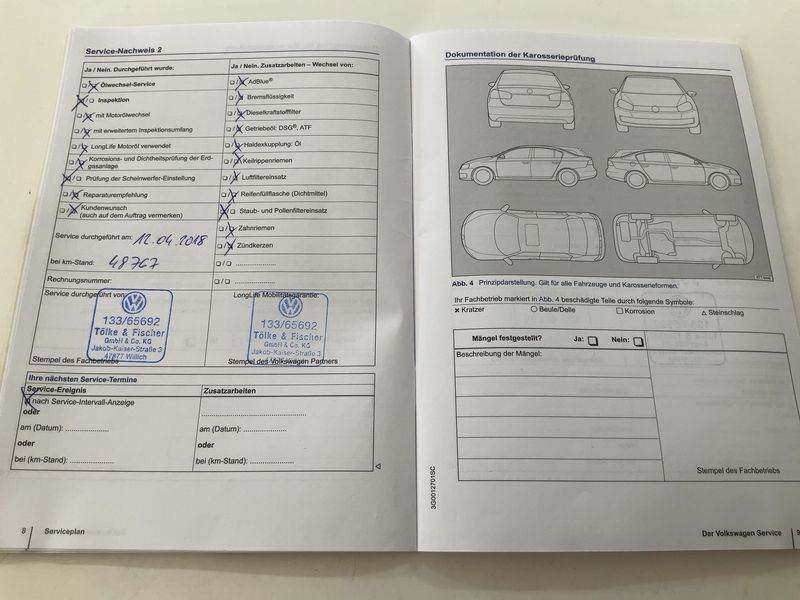 Service-Nachweis 2
Ja / Nein. Durchgeführt wurde:
❏/❏ Ölwechsel-Service
❏/❏ Inspektion
❏/❏ mit Motorölwechsel
❏/❏ mit erweitertem Inspektionsumfang
❏/❏ LongLife Motoröl verwendet
❏/❏ Korrosions- und Dichtheitsprüfung der Erd-
gasanlage
❏/❏ Prüfung der Scheinwerfer-Einstellung
❏/❏ Reparaturempfehlung
❏/❏ Kundenwunsch
(auch auf dem Auftrag vermerken)
Service durchgeführt am: 12.04.2018
bei km-Stand: 48767
Rechnungsnummer:
Service durchgeführt von:
133/65692
Tölke & Fischer
GmbH & Co. KG
Jakob-Kaiser-Straße 3
47877 Willich
Stempel des Fachbetriebs
Ja / Nein. Zusatzarbeiten – Wechsel von:
❏/❏ AdBlue®
❏/❏ Bremsflüssigkeit
❏/❏ Dieselkraftstofffilter
❏/❏ Getriebeöl: DSG®, ATF
❏/❏ Haldexkupplung: Öl
❏/❏ Keilrippenriemen
❏/❏ Luftfiltereinsatz
❏/❏ Reifenfüllflasche (Dichtmittel)
❏/❏ Staub- und Pollenfiltereinsatz
❏/❏ Zahnriemen
❏/❏ Zündkerzen
❏/❏ ....................
❏/❏ ....................
LongLife Mobilitätsgarantie:
133/65692
Tölke & Fischer
GmbH & Co. KG
Jakob-Kaiser-Straße 3
Stempel des Volkswagen Partners
Ihre nächsten Service-Termine
Service-Ereignis
❏ nach Service-Intervall-Anzeige
oder
am (Datum): ....................
oder
bei (km-Stand): ....................
Zusatzarbeiten
....................
am (Datum): ....................
oder
bei (km-Stand): ....................
8 Serviceplan
Dokumentation der Karosserieprüfung
Abb. 4 Prinzipdarstellung. Gilt für alle Fahrzeuge und Karosserieformen.
Ihr Fachbetrieb markiert in Abb. 4 beschädigte Teile durch folgende Symbole:
× Kratzer ○ Beule/Delle □ Korrosion △ Steinschlag
Mängel festgestellt? Ja: ❏ Nein: ❏
Beschreibung der Mängel:
Stempel des Fachbetriebs
3G0012701SC
Der Volkswagen Service 9